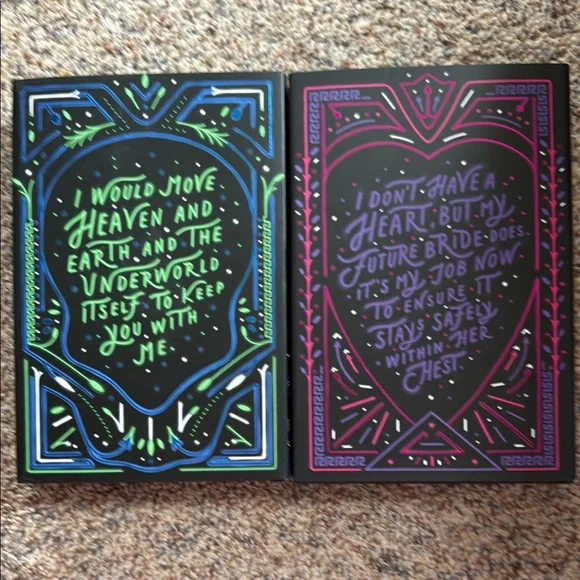 I WOULD MOVE
HEAVEN AND
EARTH AND THE
UNDERWORLD
ITSELF TO KEEP
YOU WITH
ME.
I DON'T HAVE A
HEART, BUT MY
FUTURE BRIDE DOES.
IT'S MY JOB NOW
TO ENSURE IT
STAYS SAFELY
WITHIN HER
CHEST.